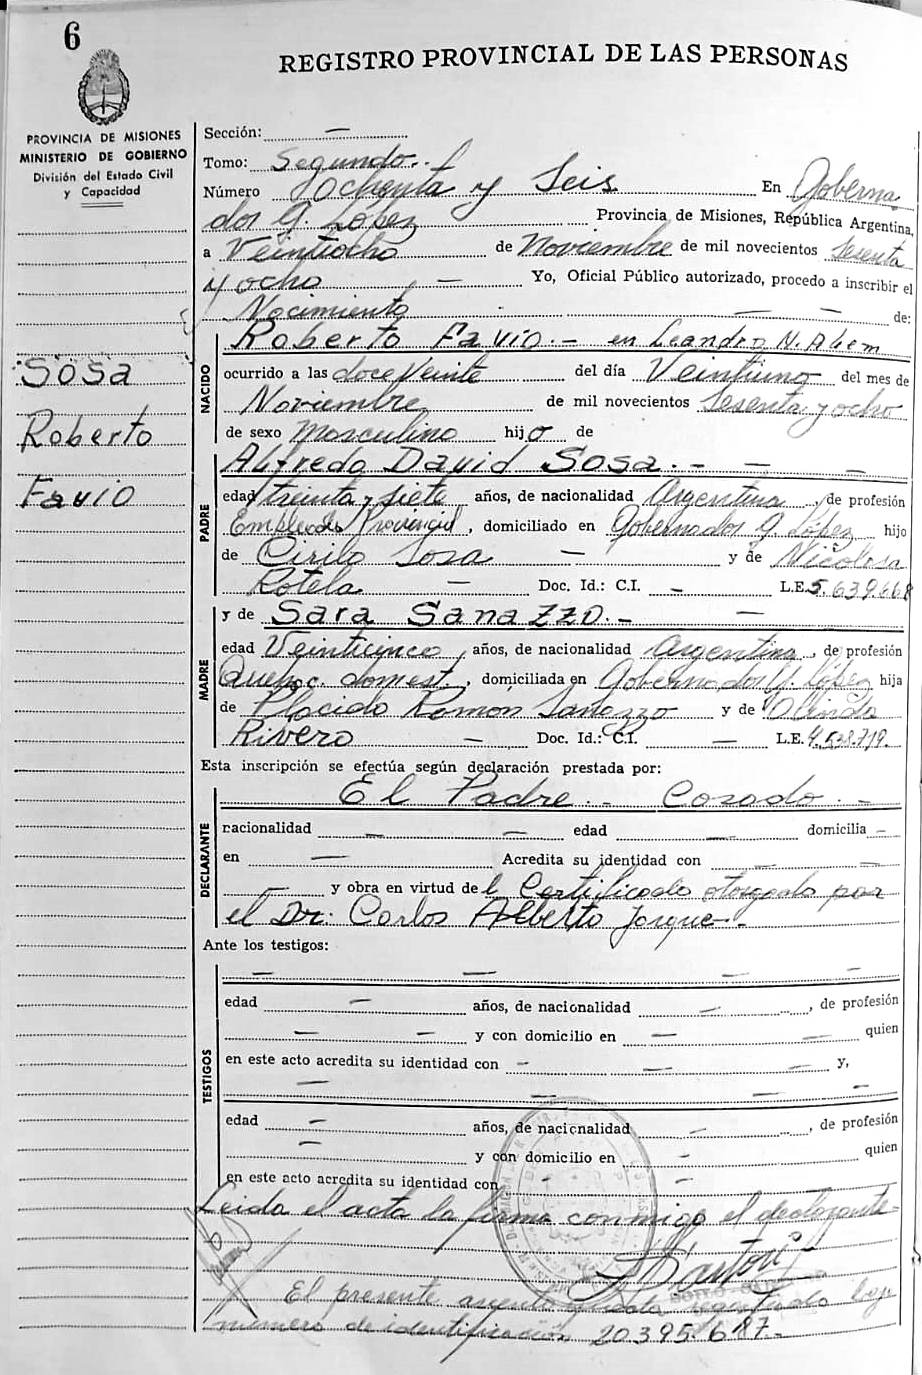 6
REGISTRO PROVINCIAL DE LAS PERSONAS
PROVINCIA DE MISIONES
MINISTERIO DE GOBIERNO
División del Estado Civil
y Capacidad
Sección: —
Tomo: Segundo.
Número Ochenta y Seis En Goberna
dor G. López Provincia de Misiones, República Argentina,
a Veintiocho de Noviembre de mil novecientos Sesenta
y ocho — Yo, Oficial Público autorizado, procedo a inscribir el
Nacimiento — — de:
Sosa
Roberto
Favio
NACIDO
Roberto Favio.- en Leandro N. Alem
ocurrido a las doce Veinte del día Veintiuno del mes de
Noviembre de mil novecientos Sesenta y ocho
de sexo Masculino hijo de
PADRE
Alfredo David Sosa.- — —
edad treinta y siete años, de nacionalidad Argentina, de profesión
Empleado Provincial, domiciliado en Gobernador G. López hijo
de Cirilo Sosa — y de Nicolasa
Rotela — Doc. Id.: C.I. — L.E. 5.639.668
MADRE
y de Sara Sanazzo.- —
edad Veinticinco, años, de nacionalidad Argentina, de profesión
Quehac. domest., domiciliada en Gobernador G. López hija
de Placido Ramón Sanazzo y de Olinda
Rivero — Doc. Id.: C.I. — L.E. 4.538.719.
Esta inscripción se efectúa según declaración prestada por:
DECLARANTE
El Padre.- Casado.-
nacionalidad — — edad — domicilia —
en — Acredita su identidad con — —
— y obra en virtud del Certificado otorgado por
el Dr. Carlos Alberto Jorque.-
Ante los testigos:
TESTIGOS
— — — —
edad — años, de nacionalidad — , de profesión
— — y con domicilio en — — quien
en este acto acredita su identidad con — — — y,
— — —
edad — años, de nacionalidad — , de profesión
— y con domicilio en — quien
en este acto acredita su identidad con — —
Leida el acta la firma conmigo el declarante-
El presente asento queda registrado bajo
número de identificación 20.395.687.-